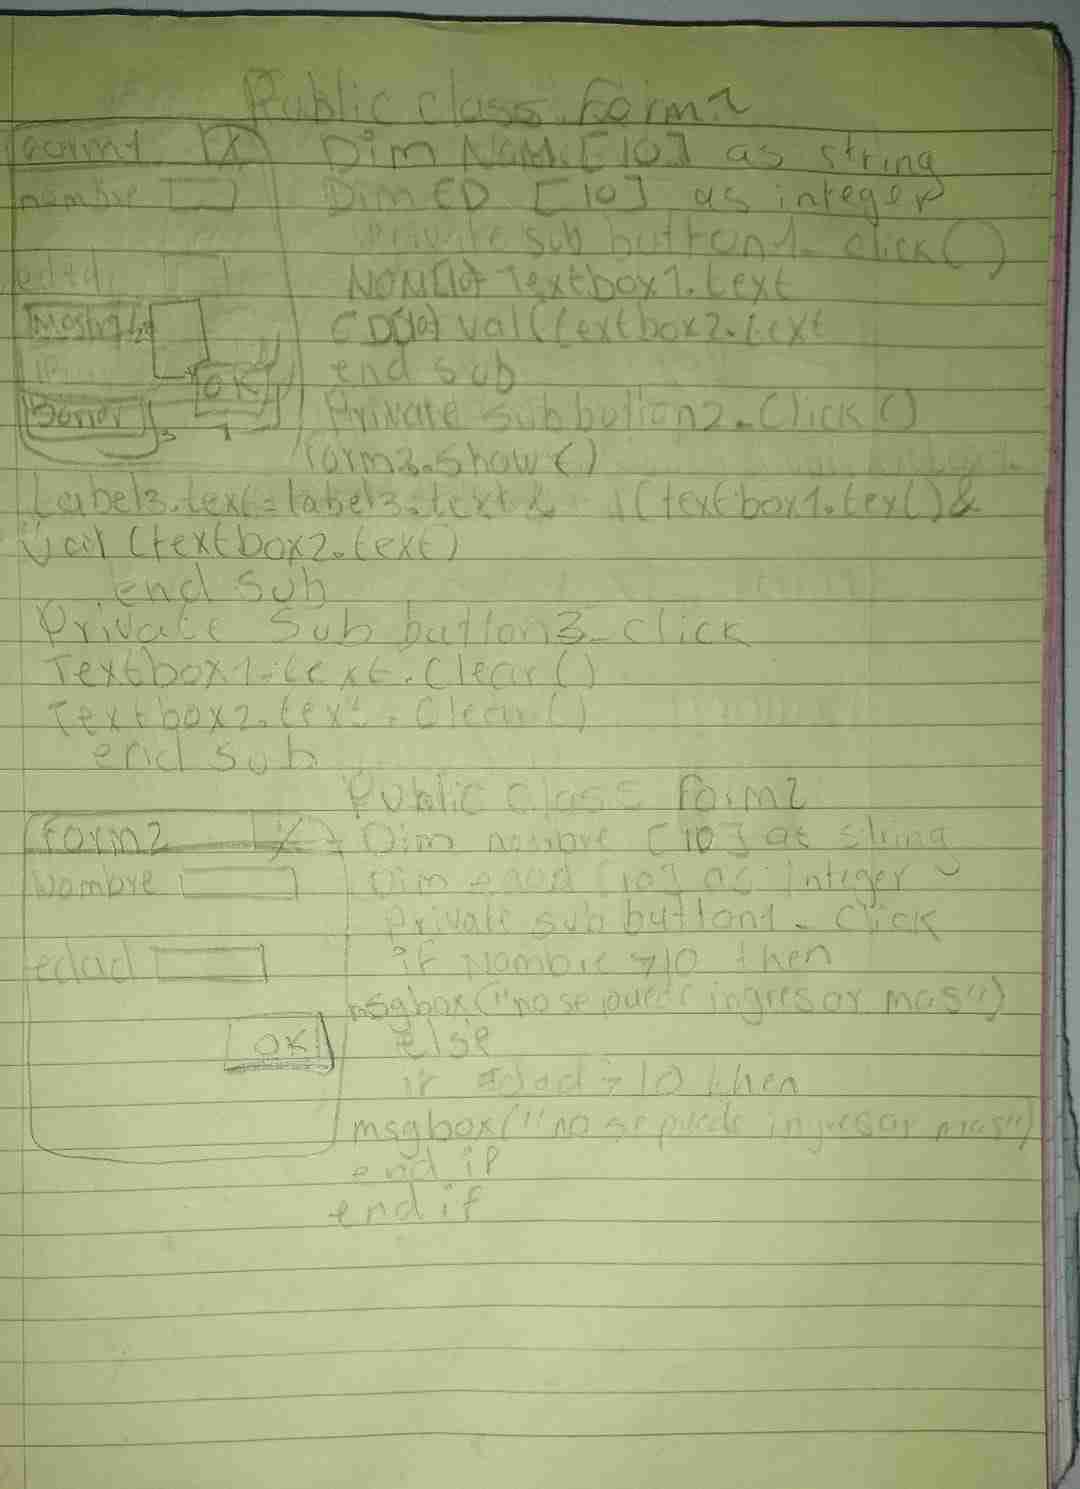 Public class Form2
form1 X
Dim NOM [10] as string
nombre
Dim ED [10] as integer
Private sub button1_click()
edad
NOM(10) Textbox1.text
Mostrar 2
ED(10) val(textbox2.text
end sub
OK
Borrar 3 1
Private sub button2_Click()
form3.show()
Label3.text=label3.text & (textbox1.text)&
val (textbox2.text)
end sub
Private Sub button3_click
Textbox1.text.Clear()
Textbox2.text.Clear()
end sub
Public class form2
form2 X
Dim nombre [10] as string
Nombre
Dim edad [10] as Integer
Private sub button1_Click
edad
if Nombre >10 then
msgbox("no se puede ingresar mas")
OK
else
if edad >10 then
msgbox("no se puede ingresar mas")
end if
end if